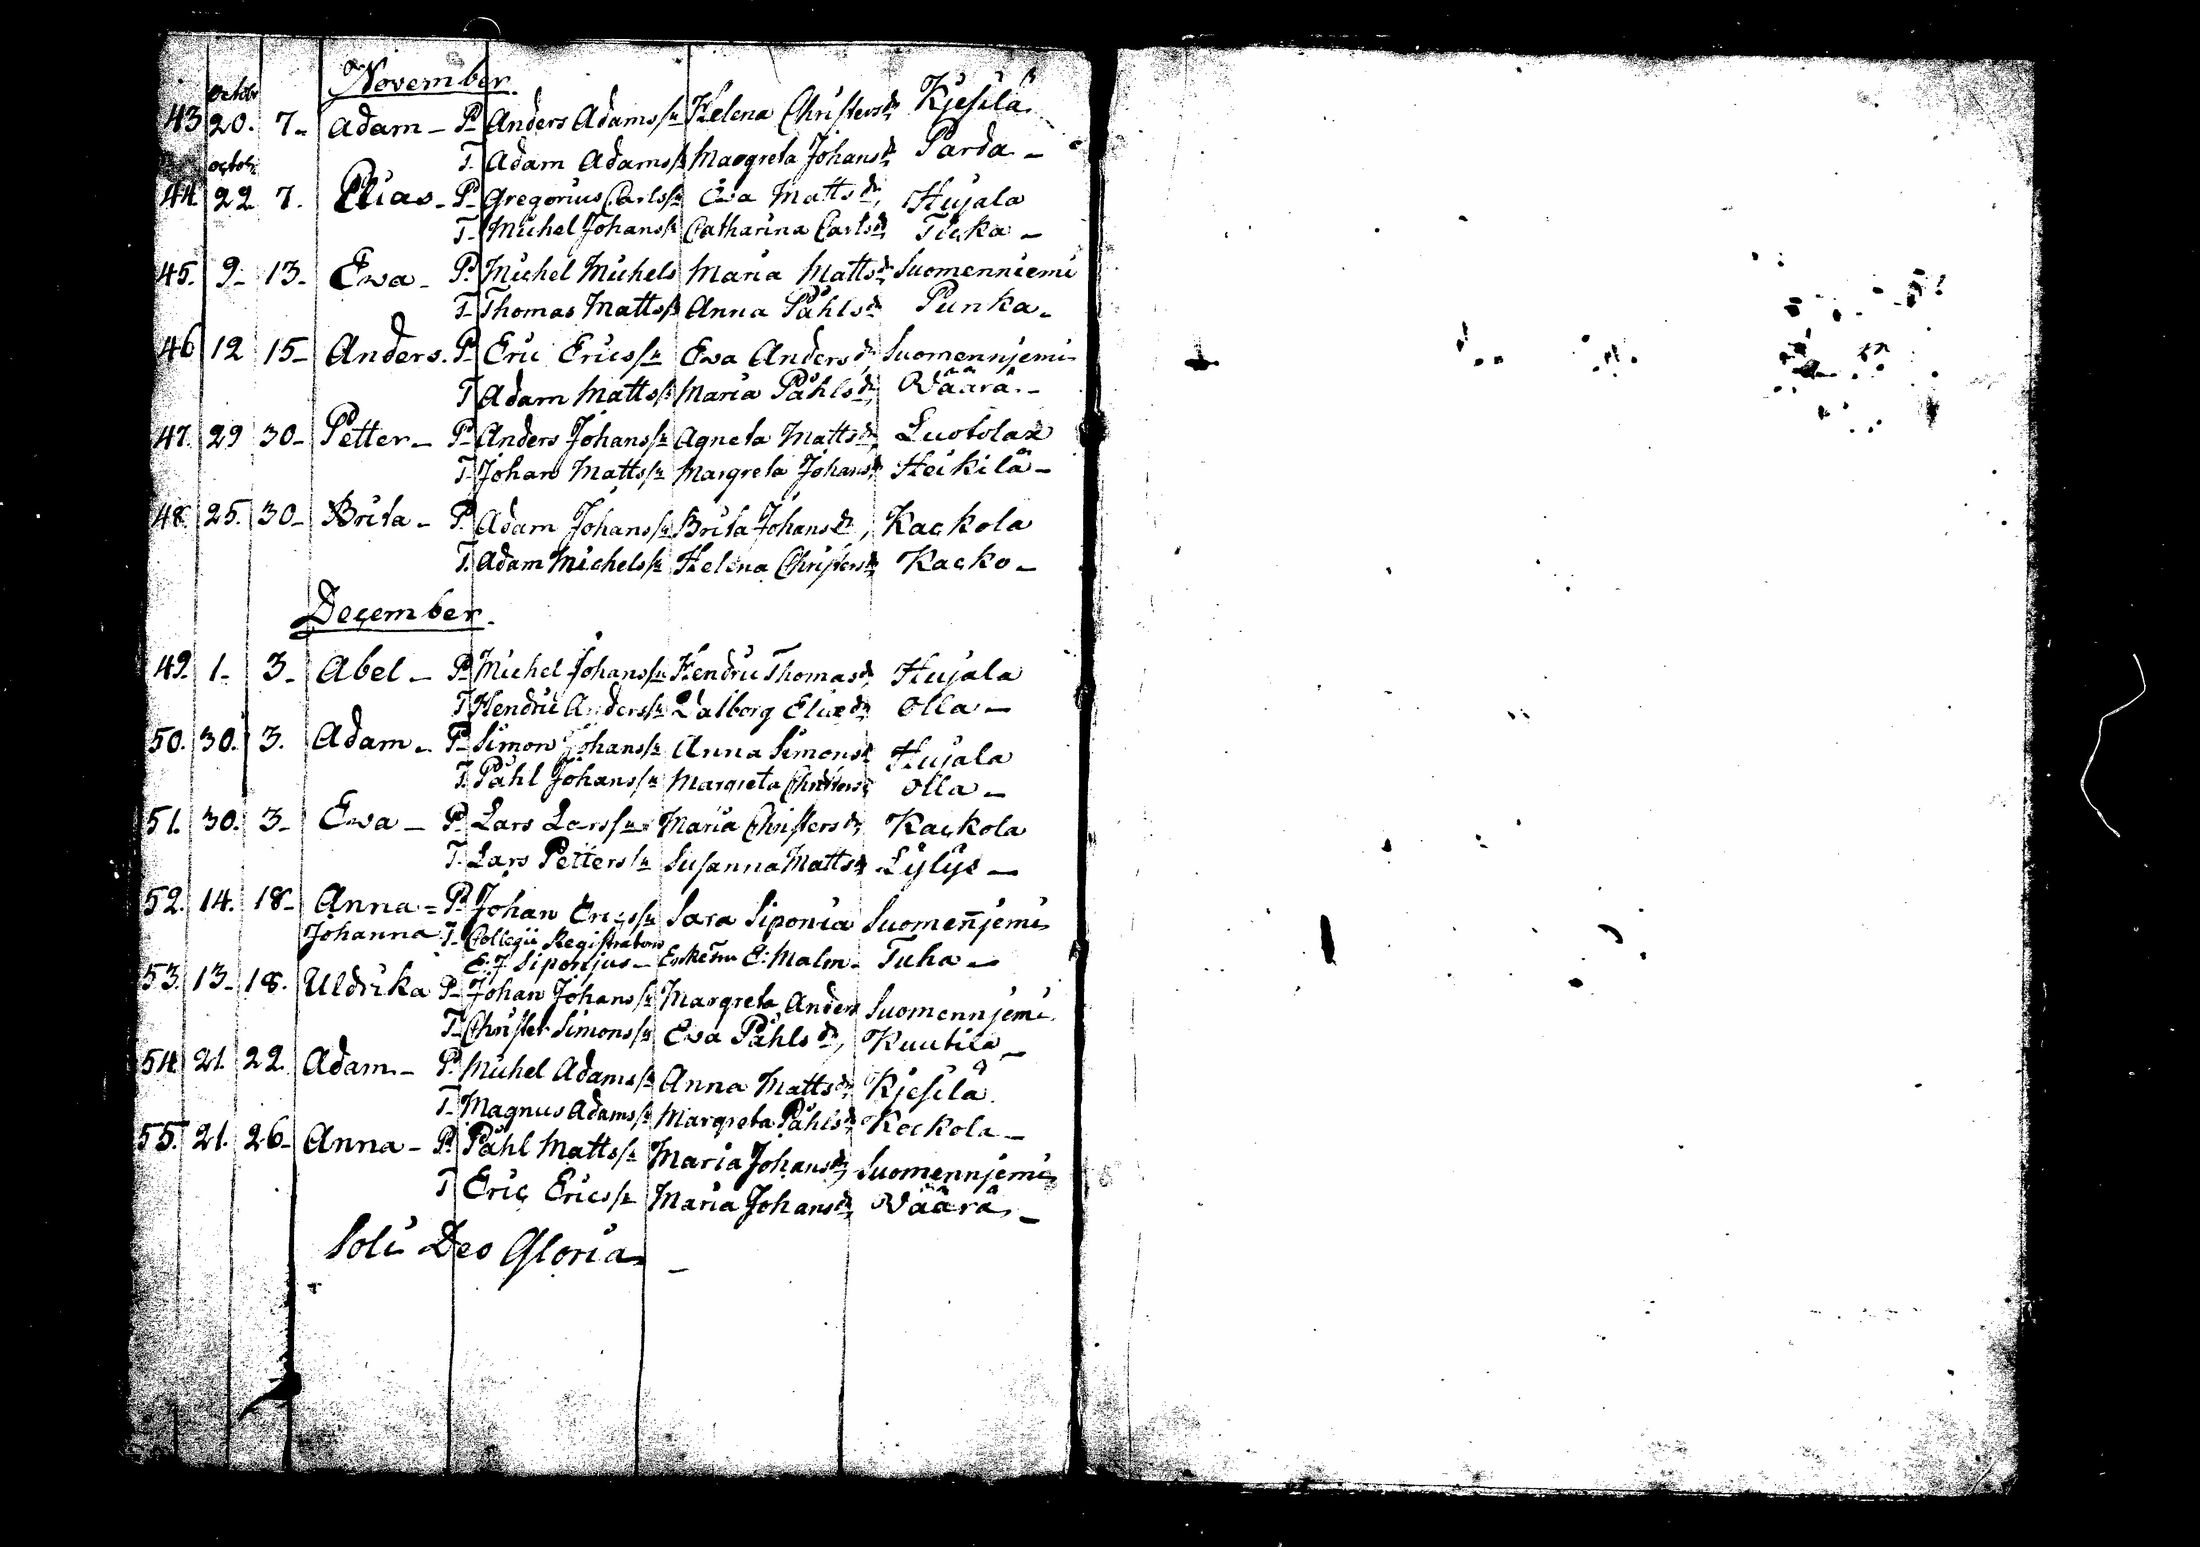 November.
octobr
43 20. 7. Adam - P. Anders Adamss: Helena Christersdr Kjesilä
T. Adam Adamss: Margreta Johansdr Parda -
octob:
44. 22 7. Elias - P. Gregorius Carlss: Ewa Mattsdr, Hujala
T. Michel Johanss: Catharina Carlsdr Ticka -
45. 9. 13. Ewa - P. Michel Michels Maria Mattsdr Suomenniemi
T. Thomas Mattss: Anna Påhlsdr Punka.
46 12 15. Anders. P. Eric Ericss: Ewa Andersdr, Suomennjemi
T. Adam Mattss: Maria Påhlsdr, Wäärä. -
47. 29 30. Petter - P. Anders Johanss: Agneta Mattsdr, Luotolax
T. Johan Mattss: Margreta Johansdr Heikilä -
48. 25. 30. Brita - P. Adam Johanss: Brita Johansdr, Kackola
T. Adam Michelss: Helena Christersdr Kacko -
December.
49. 1. 3. Abel - P. Michel Johanss: Hendric Thomasdr, Hujala
T. Hendric Anderss: Valborg Eliædr Olla -
50. 30. 3. Adam - P. Simon Johanss: Anna Simonsdr Hujala
T. Påhl Johanss: Margreta Christers: Olla -
51. 30. 3. Ewa - P. Lars Larss: Maria Christersdr, Kackola
T. Lars Petterss: Susanna Mattsdr Lylys -
52. 14. 18. Anna = P. Johan Ericss: Sara Siponia Suomen̄jemi
Johanna T. Collegii Registratorn
E. J. Siponjus - Enkefru E: Malm. Tuha -
53. 13. 18. Uldrika P. Johan Johanss: Margreta Anders Suomennjemi.
T. Christer Simonss: Ewa Påhlsdr, Kuutila -
54. 21. 22. Adam - P. Michel Adamss: Anna Mattsdr, Kjesilä.
T. Magnus Adamss: Margreta Påhlsdr, Kockola -
55. 21. 26. Anna - P. Påhl Mattss: Maria Johansdr, Suomennjemi
T Eric Ericss: Maria Johansdr, Wäärä. -
Soli Deo Gloria -